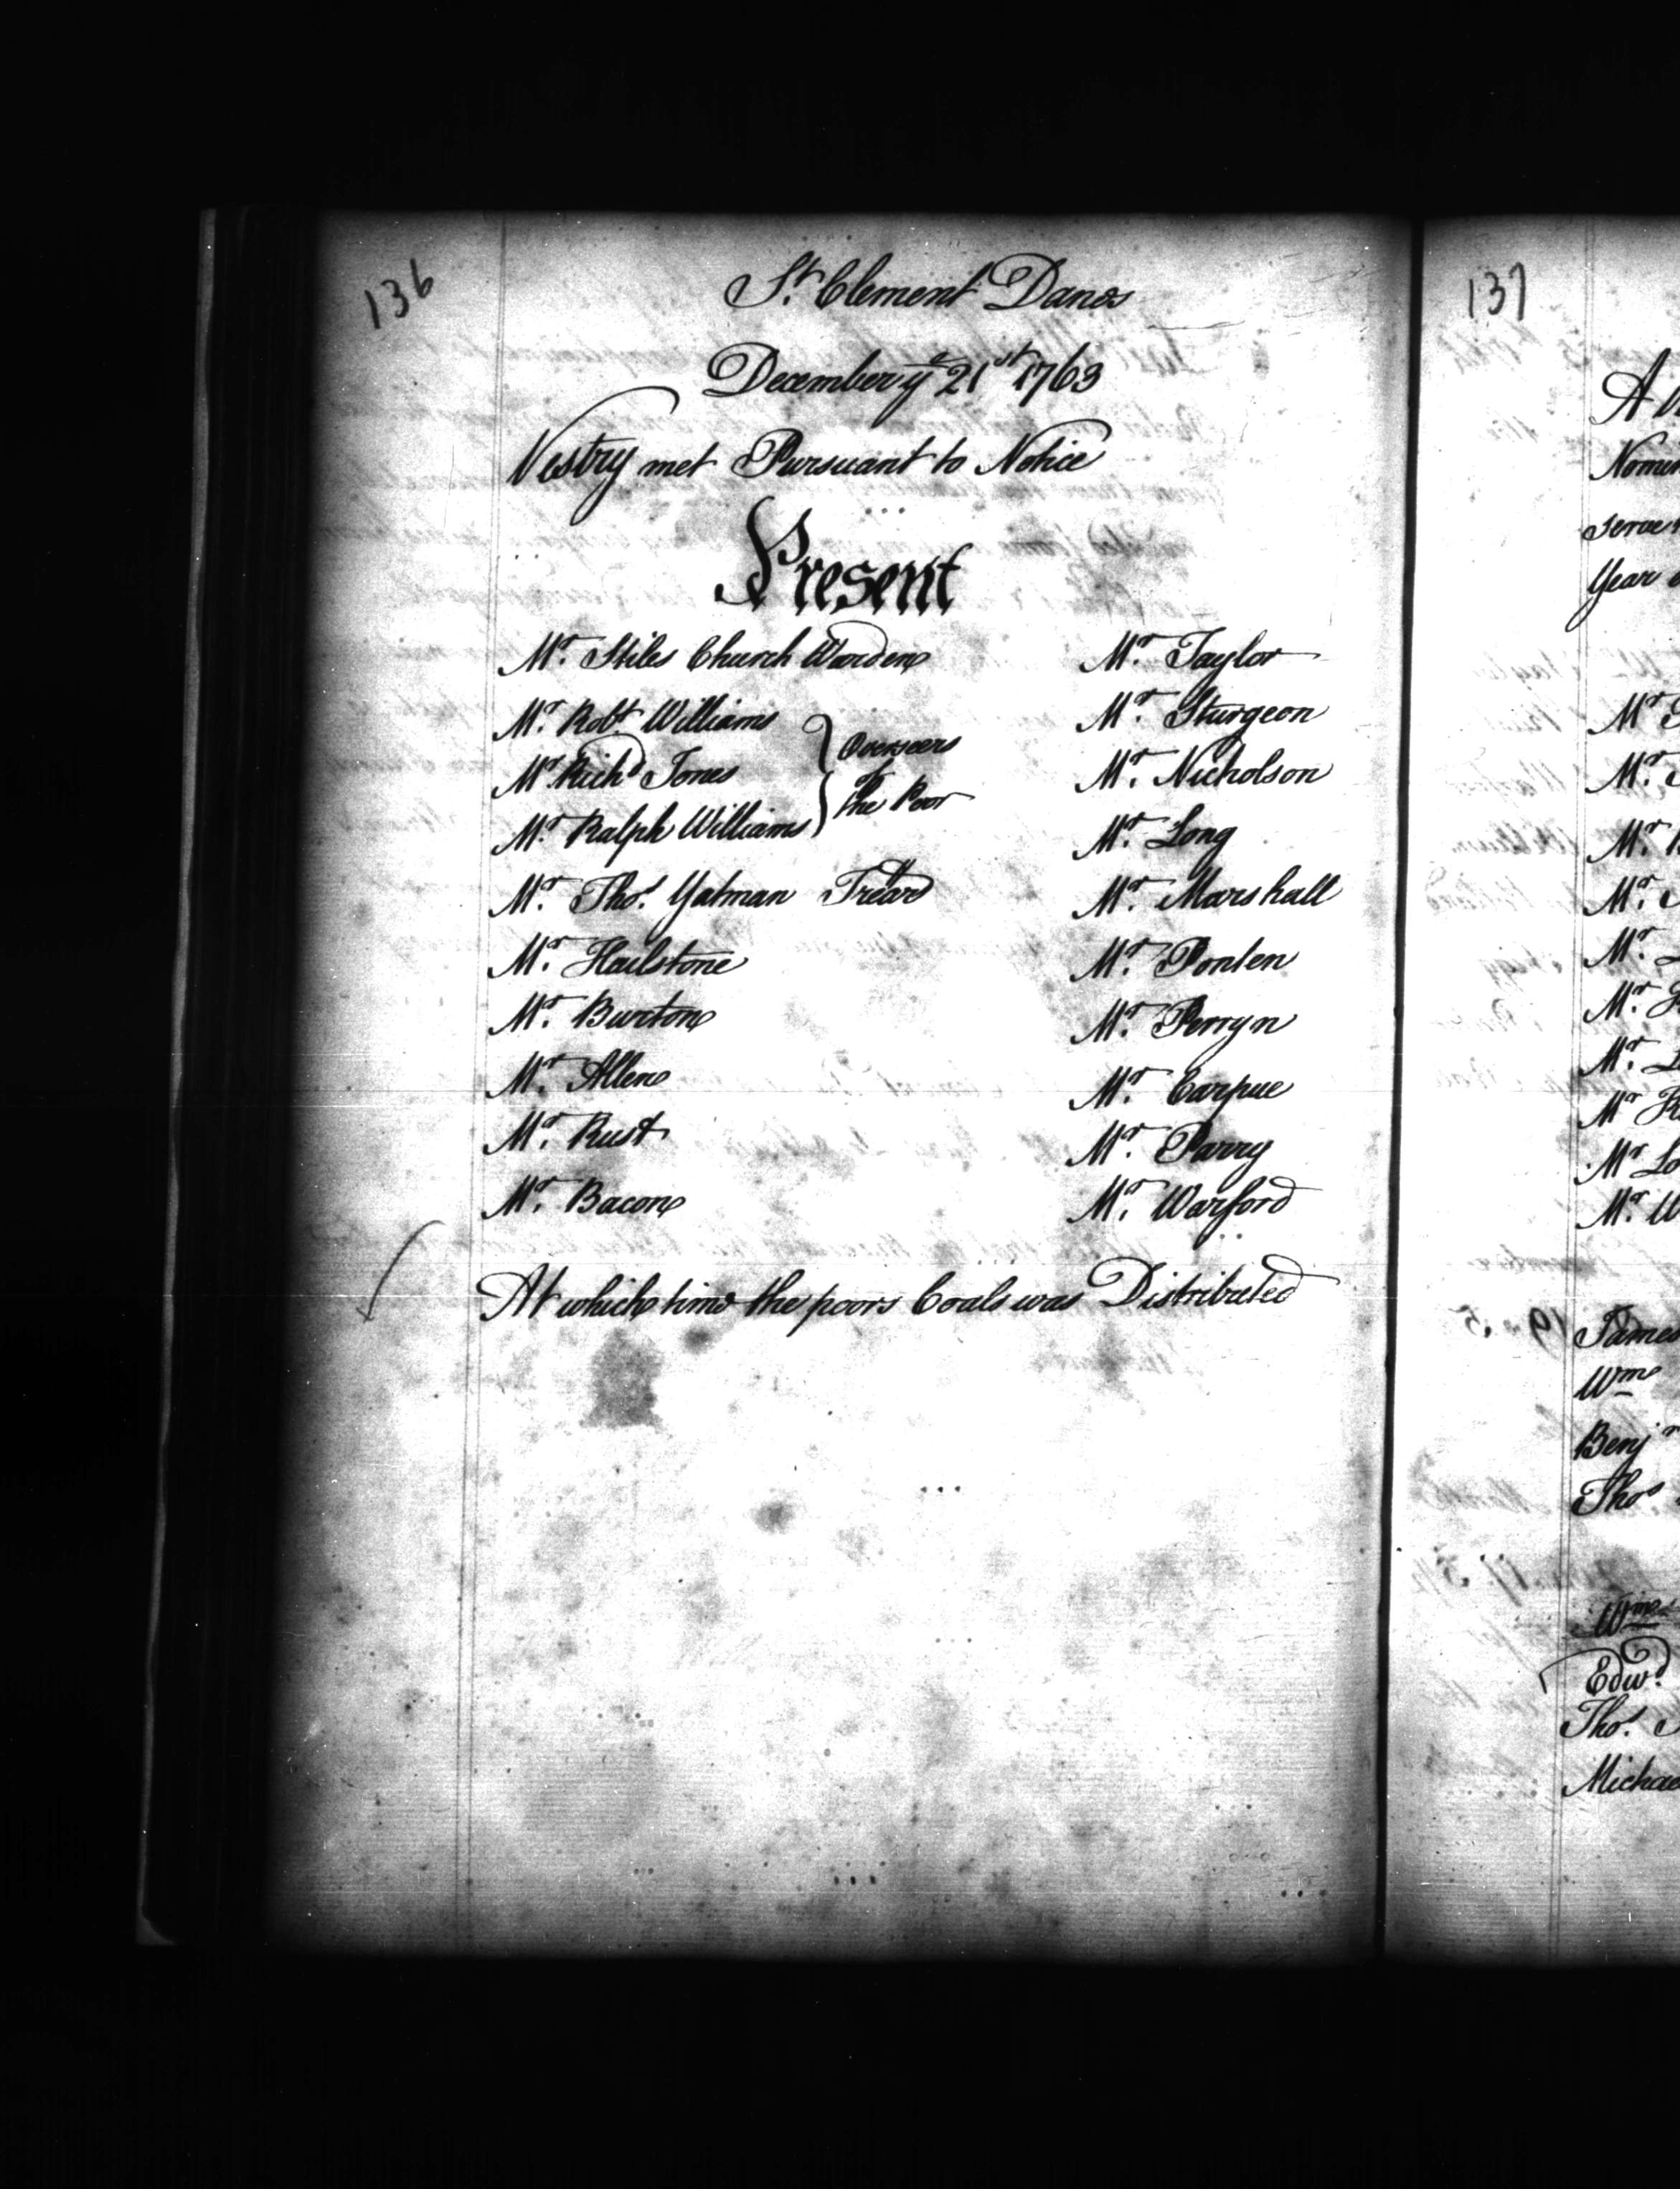 136
St. Clement Danes
December ye 21st 1763
Vestry met Pursuant to Notice
Present
Mr. Stiles Church Warden
Mr. Robt Williams
Mr. Richd Jones
Mr. Ralph Williams
Overseers
of
the Poor
Mr. Thos. Yatman Trear
Mr. Hailstone
Mr. Burton
Mr. Allen
Mr. Rust
Mr. Bacon
Mr. Taylor
Mr. Sturgeon
Mr. Nicholson
Mr. Long
Mr. Marshall
Mr. Ponten
Mr. Perryn
Mr. Carpue
Mr. Parry
Mr. Warford
At which time the poors Coals was Distributed
137
A
serve
Year
Mr
Mr.
Mr.
Mr.
Mr.
Mr.
Mr.
Mr
Mr
Mr.
James
Wm
Benj
Thos
Wm
Edwd
Thos.